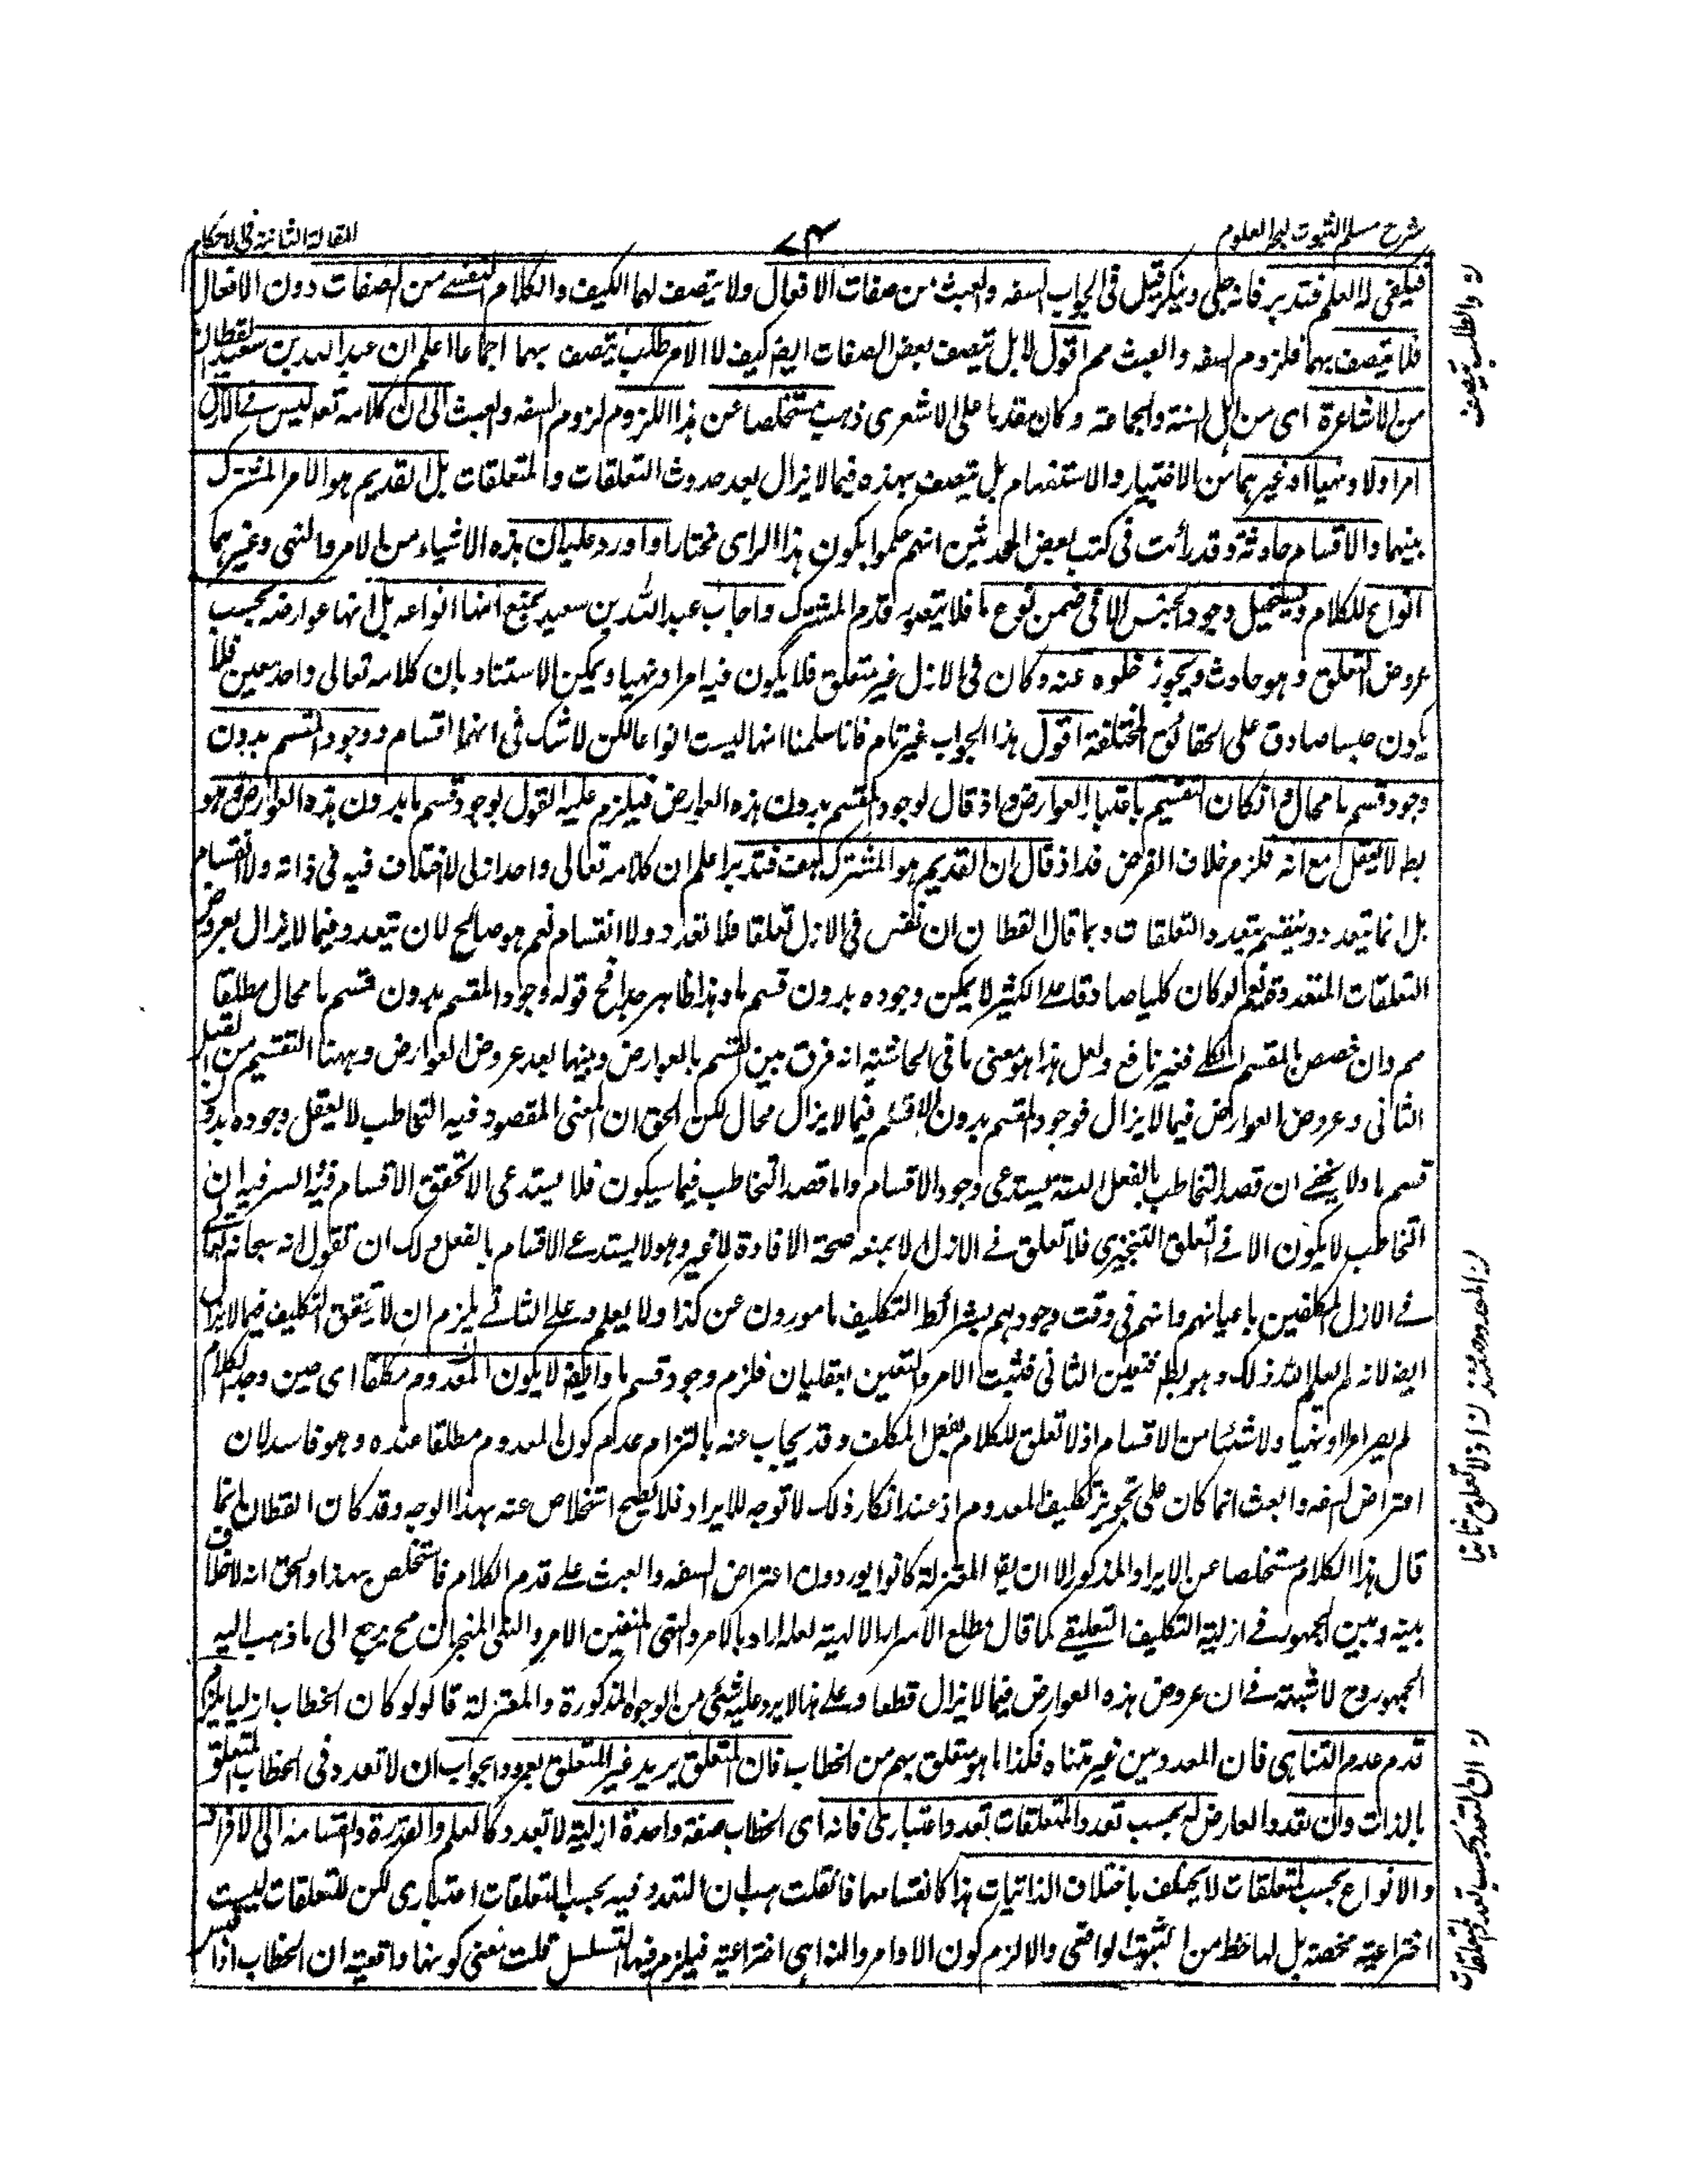 شرح مسلم الثبوت لبحر العلوم
٧٤
المقالة الثانية فى الاحكام
فيكفى له العلم فتدبر فانه جلى وينكر قيل فى الجواب السفه والعبث من صفات الافعال ولا يتصف لهما الكيف والكلام النفسى من الصفات دون الافعال
فلا يتصف بهما فلزوم السفه والعبث مم اقول لا بل تيصف بعض الصفات ايض كيف لا الامر طلب يتصف بهما اجماعا اعلم ان عبد الله بن سعيد القطان
من الاشاعرة اى من اهل السنة والجماعة وكان مقدما على الاشعرى ذهب مستخلصا عن هذا اللزوم لزوم السفه والعبث الى ان كلامه تعه ليس فى الازل
امرا ولا ونهيا او غيرهما من الاختبار والاستفهام بل تيصف بهذه فيما لا يزال بعد حدوث التعلقات والمتعلقات بل القديم هو الامر المشترك
بينهما والاقسام حادثة وقد رأيت فى كتب بعض المحدثين انهم حكموا بكون هذا الراى مختارا واورد عليه ان هذه الاشياء من الامر والنهى وغيرهما
انواع للكلام ويستحيل وجود الجنس الا فى ضمن نوع ما فلا يتصور قدم المشترك واجاب عبد الله بن سعيد بمنع انها انواعه بل انها عوارضه بحسب
عروض التعلق وهو حادث ويجوز خلوه عنه وكان فى الازل غير متعلق فلا يكون فيه امرا ونهيا ويمكن الاستناد بان كلامه تعالى واحد معين فلا
يكون جنسا صادق على الحقائق المختلفة اقول هذا الجواب غير تام فانا سلمنا انها ليست انواعا لكن لا شك فى انهما اقسام ووجود المقسم بدون
وجود قسم ما محال وان كان التقسيم باعتبار العوارض واذ قال لوجود المقسم بدون هذه العوارض فيلزم عليه القول بوجود قسم ما بدون هذه العوارض وهو
بط لا يعقل مع انه فلزم خلاف الفرض فداذ قال ان القديم هو المشترك هف فتدبر اعلم ان كلامه تعالى واحد ازلى لا اختلاف فيه فى ذاته ولا انقسام
بل انما يتعدد وينقسم بتعدد التعلقات وبما قال القطان ان نفس فى الازل تعلقا فلا تعدد ولا انقسام نعم هو صالح لان تيعدد فيما لا يزال بعروض
التعلقات المتعددة نعم لو كان كليا صادقا على الكثير لا يمكن وجوده بدون قسم ما وهذا ظاهر جدا فح قوله وجود المقسم بدون قسم ما محال مطلقا
مم وان خصص بالمقسم الكلى فغير نافع ولعل هذا هو معنى ما فى الحاشية انه فرق بين القسم بالعوارض وبينها بعد عروض العوارض وههنا التقسيم من القبيل
الثانى وعروض العوارض فيما لا يزال فوجود المقسم بدون الاقسام فيما لا يزال محال لكن الحق ان المعنى المقصود فيه التخاطب لا يعقل وجوده بدون
قسم ما ولا يخفى ان قصد التخاطب بالفعل البتة يستدعى وجود الاقسام واما قصد التخاطب فيما سيكون فلا يستدعى الا تحقق الاقسام فيه السر فيه ان
التخاطب لا يكون الا فى التعلق التنجيزى فلا تعلق فى الازل الا بمعنى صحة الافادة لا غير وهو لا يستدعى الاقسام بالفعل ولك ان تقول انه سبحانه
فى الازل المكلفين باعيانهم وانهم فى وقت وجودهم بشرائط التكليف مامورون عن كذا ولا يعلم وعلى الثانى يلزم ان لا يتحقق التكليف فيما لا يزال
ايض لانه لم يعلم الله ذلك وهو بط فتعين الثانى فثبت الامر والتعين بعقليان فلزم وجود قسم ما وايض لا يكون المعدوم مكلفا اى حين وجد الكلام
لم يصر امرا ونهيا ولا شئيا من الاقسام اذ لا تعلق للكلام بفعل المكلف وقد يجاب عنه بالتزام عدم كون المعدوم مطلقا عنده وهو فاسد لان
اعتراض السفه والعبث انما كان على تجويز تكليف المعدوم اذ عند انكار ذلك لا توجه للايراد فلا يصح استخلاص عنه بهذا الوجه وقد كان القطان انما
قال هذا الكلام مستخلصا عن الايراد المذكور الا ان يقه المعتزلة كانوا يوردون اعتراض السفه والعبث على قدم الكلام فاستخلص بهذا والحق انه لا خلاف
بينه وبين الجمهور فى ازلية التكليف التعليقى كما قال مطلع الاسرار الالهية لعله اراد بالامر والنهى المنفيين الامر والنهى المنجزان مح يرجع الى ما ذهب اليه
الجمهور وح لا شبهة فى ان عروض هذه العوارض فيما لا يزال قطعا وعلى هذا لا يرد عليه شئ من الوجوه المذكورة والمعتزلة قالوا لو كان الخطاب ازليا يلزم
قدم عدم التناهى فان المعدومين غير متناه فكذا ما هو متعلق بهم من الخطاب فان المتعلق بزيد غير المتعلق بعمرو والجواب ان لا تعدد فى الخطاب المتعلق
بالذات وان تعدد العارض له بحسب تعدد المتعلقات تعدد اعتبارى فانه اى الخطاب صفة واحدة ازلية لا تعدد كالعلم والقدرة وانقسامه الى الافراد
والانواع بحسب المتعلقات لا يختلف باختلاف الذاتيات هذا كانقسامها فان قلت هب ان التعدد فيه بحسب التعلقات اعتبارى لكن للتعلقات ليست
اختراعية محضة بل لها حظ من الثبوت الواقعى والا لزم كون الاوامر والنواهى اختراعية فيلزم فيها التسلسل قلت معنى كونها واقعية ان الخطاب اذا
ن والطلب يتصف
ن اذ لا تعلق ثانيا
ن ان التعدد بحسب تعدد المتعلقات